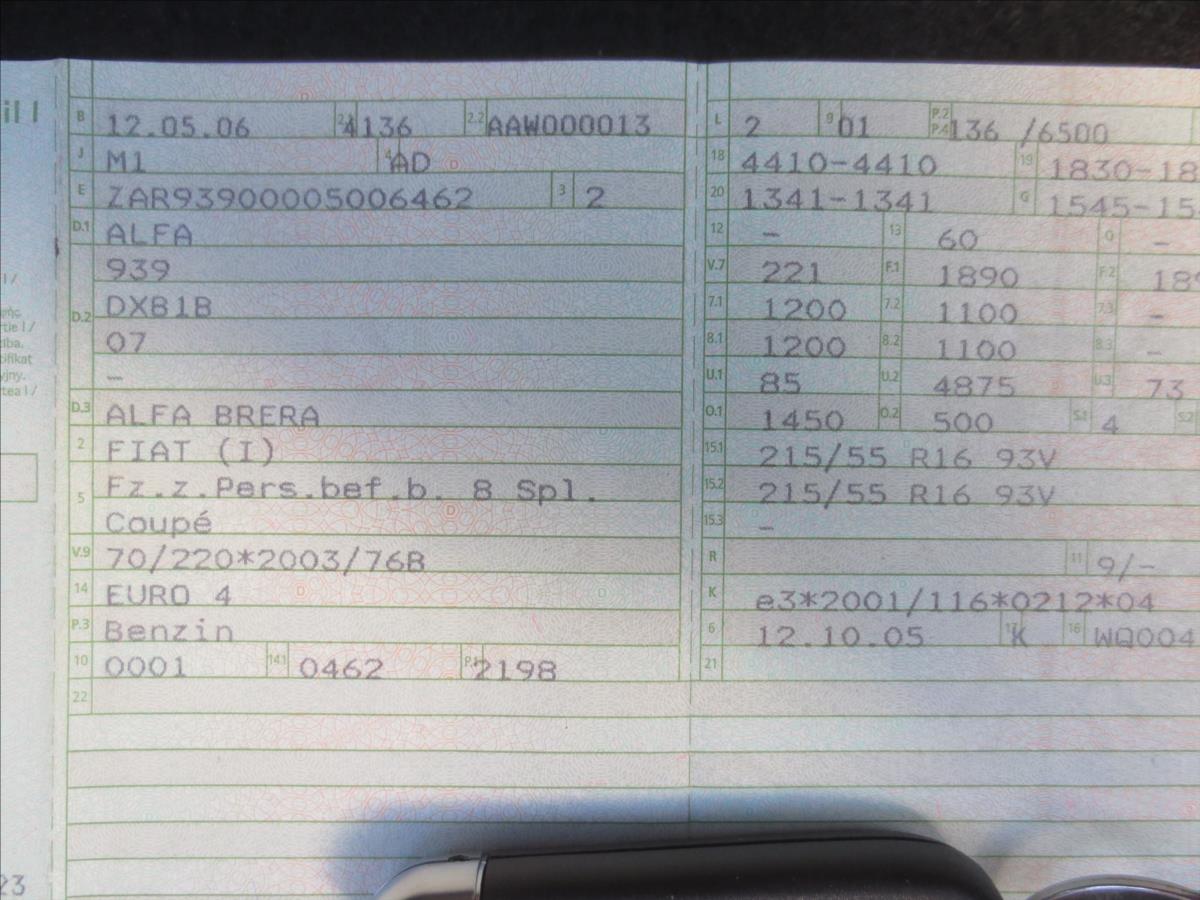 il I
B 12.05.06 2.1 4136 2.2 AAW000013
J M1 4 AD
E ZAR93900005006462 3 2
D.1 ALFA
939
D.2 DXB1B
07
–
D.3 ALFA BRERA
2 FIAT (I)
5 Fz.z.Pers.bef.b. 8 Spl.
Coupé
V.9 70/220*2003/76B
14 EURO 4
P.3 Benzin
10 0001 14.1 0462 P.1 2198
22
L 2 9 01 P.2 P.4 136 /6500
18 4410-4410 19 1830-18
20 1341-1341 G 1545-15
12 – 13 60 Q –
V.7 221 F.1 1890 F.2 189
7.1 1200 7.2 1100 7.3 –
8.1 1200 8.2 1100 8.3 –
U.1 85 U.2 4875 U.3 73
O.1 1450 O.2 500 S.1 4 S.2
15.1 215/55 R16 93V
15.2 215/55 R16 93V
15.3 –
R 11 9/–
K e3*2001/116*0212*04
6 12.10.05 17 K 16 WQ004
21
tie I /
tifikat
yjny.
tea I /
23